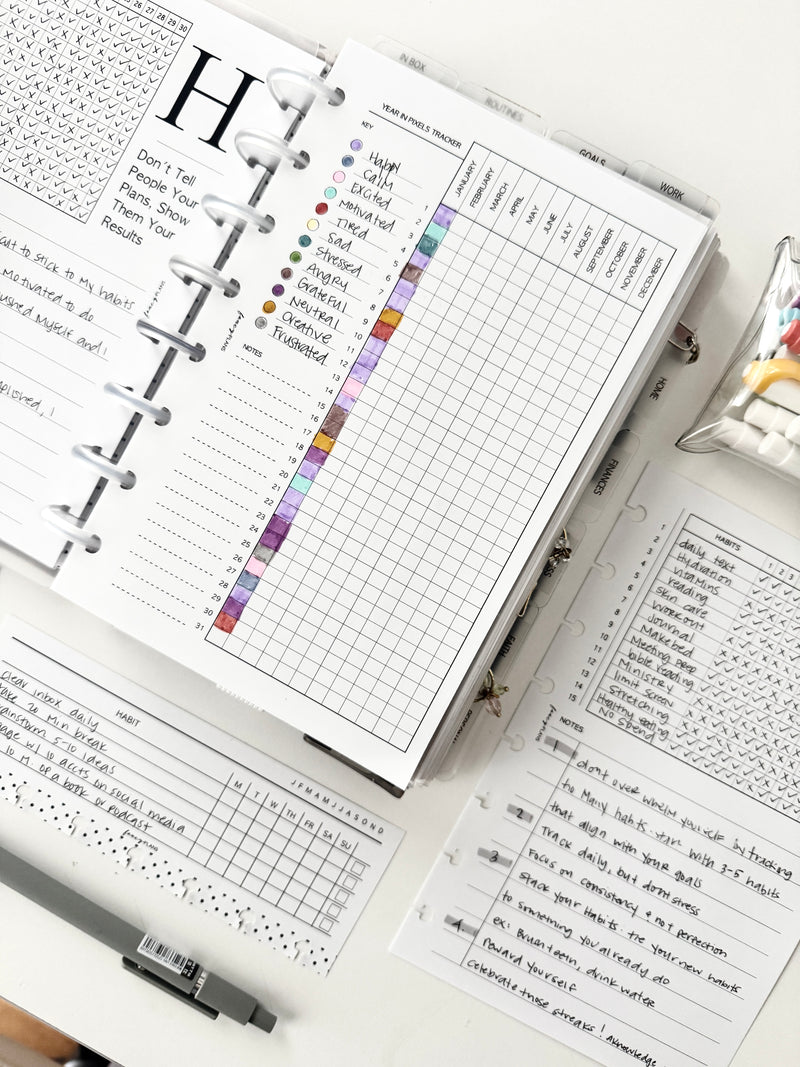 26 27 28 29 30
H
Don't Tell
People Your
Plans, Show
Them Your
Results
to stick to my habits
Motivated to do
myself and I
IN BOX
ROUTINES
GOALS
WORK
HOME
FINANCES
FAITH
YEAR IN PIXELS TRACKER
KEY
Happy
Calm
Excited
Motivated
Tired
Sad
Stressed
Angry
Grateful
Neutral
Creative
Frustrated
NOTES
JANUARY
FEBRUARY
MARCH
APRIL
MAY
JUNE
JULY
AUGUST
SEPTEMBER
OCTOBER
NOVEMBER
DECEMBER
1
2
3
4
5
6
7
8
9
10
11
12
13
14
15
16
17
18
19
20
21
22
23
24
25
26
27
28
29
30
31
HABIT
J F M A M J J A S O N D
M T W TH FR SA SU
clear inbox daily
take 20 min break
brainstorm 5-10 ideas
w/ 10 accts on social media
10 m. of a book or podcast
HABITS
1 2 3
1 daily text
2 Hydration
3 vitamins
4 reading
5 skin care
6 workout
7 Journal
8 Make bed
9 Meeting prep
10 bible reading
11 Ministry
12 limit screen
13 Stretching
14 Healthy eating
15 No Spend
NOTES
1 dont over whelm yourself by tracking
to many habits. start with 3-5 habits
that align with your goals
2 Track daily, but dont stress
Focus on consistency & not perfection
3 Stack your habits. tie your new habits
to something you already do
ex: Brush teeth, drink water
4. reward yourself
celebrate those streaks! Aknowledge